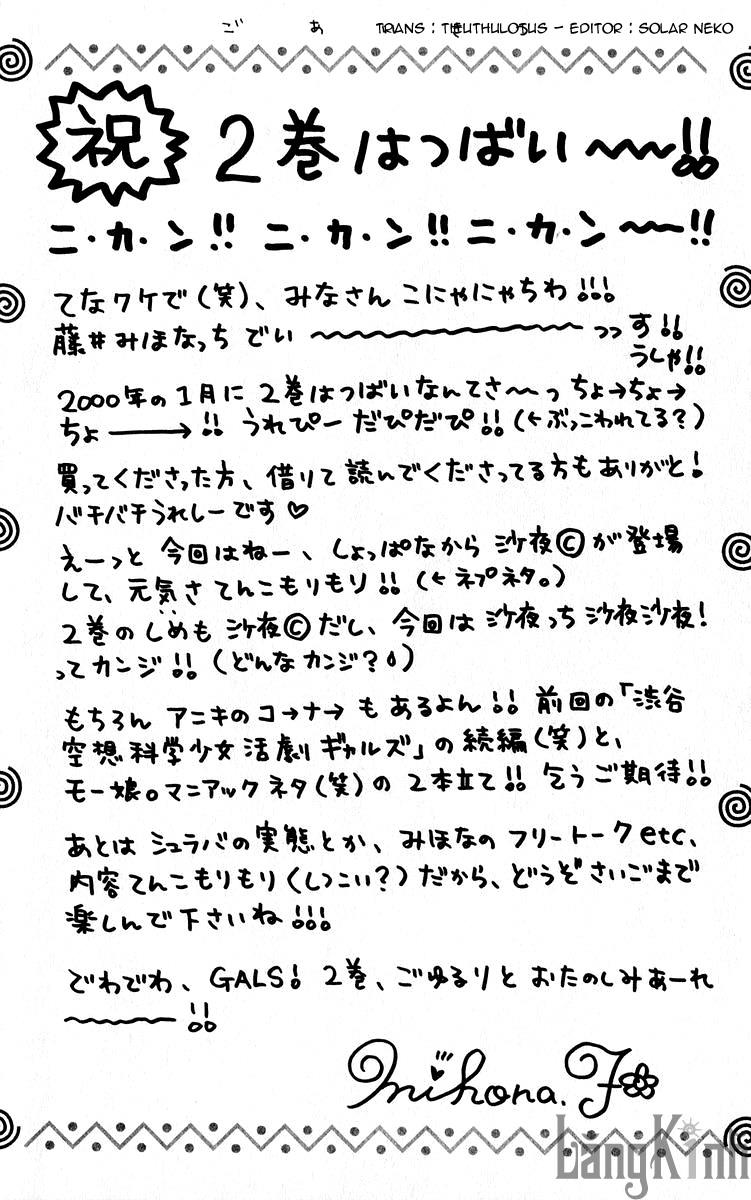 TRANS : TIEUTHULOTUS - EDITOR : SOLAR NEKO
祝 2巻はつばい〜〜!!
ニ・カ・ン!! ニ・カ・ン!! ニ・カ・ン〜〜!!
てなワケで(笑)、みなさん こにゃにゃちわ!!!
藤井みほなっち でい〜〜〜〜〜〜っっす!!
うしゃ!!
2000年の1月に2巻はつばいなんてさ〜〜っ ちょ→ちょ→
ちょ――→!! うれぴー だぴだぴ!! (←ぶっこわれてる?)
買ってくださった方、借りて読んでくださってる方もありがと!
バチバチうれしーです♡
えーっと 今回はねー、しょっぱなから 沙夜©が登場
して、元気さてんこもりもり!! (←ネプネタ。)
2巻のしめも沙夜©だし、今回は沙夜っち沙夜沙夜!
ってカンジ!! (どんなカンジ?)
もちろん アニキのコ→ナ→もあるよん!! 前回の「渋谷
空想科学少女活劇ギャルズ」の続編(笑)と、
モー娘。マニアックネタ(笑)の2本立て!! 乞うご期待!!
あとは シュラバの実態とか、みほなの フリートークetc、
内容てんこもりもり(しつこい?)だから、どうぞさいごまで
楽しんで下さいね!!!
でわでわ、GALS! 2巻、ごゆるりと おたのしみあーれ
〜〜〜〜!!
Mihona.F
LangKinh